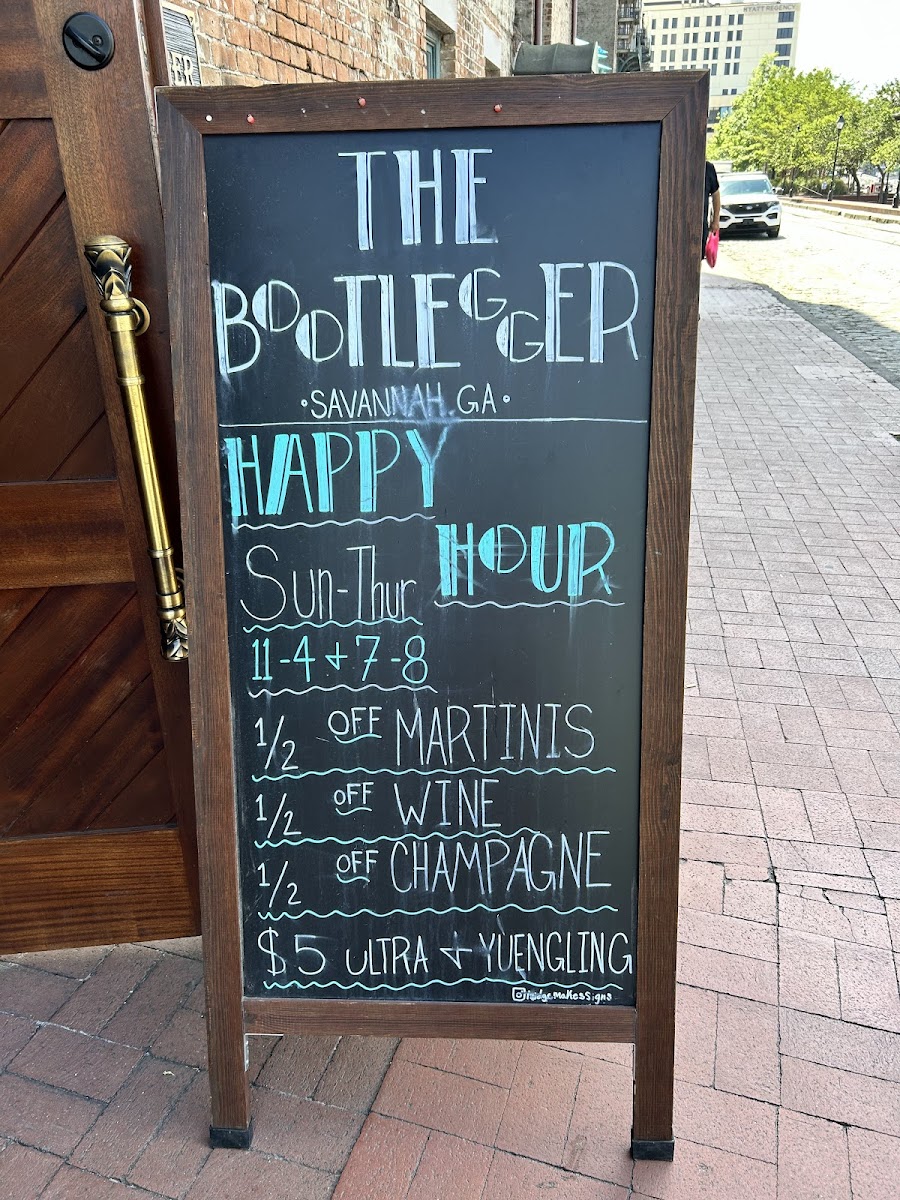 HYATT REGENCY
ER
THE
BOOTLEGGER
•SAVANNAH, GA•
HAPPY
HOUR
Sun-Thur
11-4 + 7-8
1/2 OFF MARTINIS
1/2 OFF WINE
1/2 OFF CHAMPAGNE
$5 ULTRA + YUENGLING